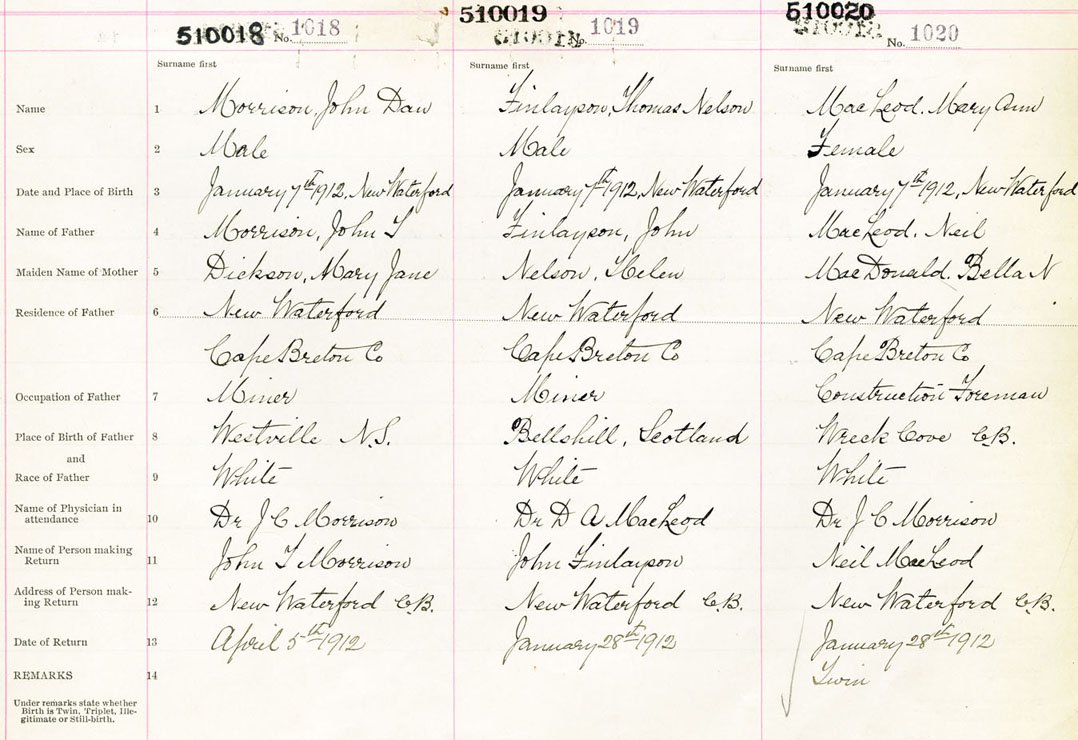 510018 No. 1018 510019 No. 1019 510020 No. 1020
Surname first Surname first Surname first
Name 1 Morrison, John Dan Finlayson, Thomas Nelson MacLeod. Mary Ann
Sex 2 Male Male Female
Date and Place of Birth 3 January 7th 1912, New Waterford January 7th 1912, New Waterford January 7th 1912, New Waterford
Name of Father 4 Morrison, John T Finlayson, John MacLeod. Neil
Maiden Name of Mother 5 Dickson, Mary Jane Nelson, Helen MacDonald. Bella N
Residence of Father 6 New Waterford New Waterford New Waterford
Cape Breton Co Cape Breton Co Cape Breton Co
Occupation of Father 7 Miner Miner Construction Foreman
Place of Birth of Father 8 Westville N.S. Bellshill, Scotland Wreck Cove C.B.
and
Race of Father 9 White White White
Name of Physician in
attendance 10 Dr J C Morrison Dr D A MacLeod Dr J C Morrison
Name of Person making
Return 11 John T Morrison John Finlayson Neil MacLeod
Address of Person mak-
ing Return 12 New Waterford C.B. New Waterford C.B. New Waterford C.B.
Date of Return 13 April 5th 1912 January 28th 1912 January 28th 1912
REMARKS 14 Twin
Under remarks state whether
Birth is Twin, Triplet, Ille-
gitimate or Still-birth.